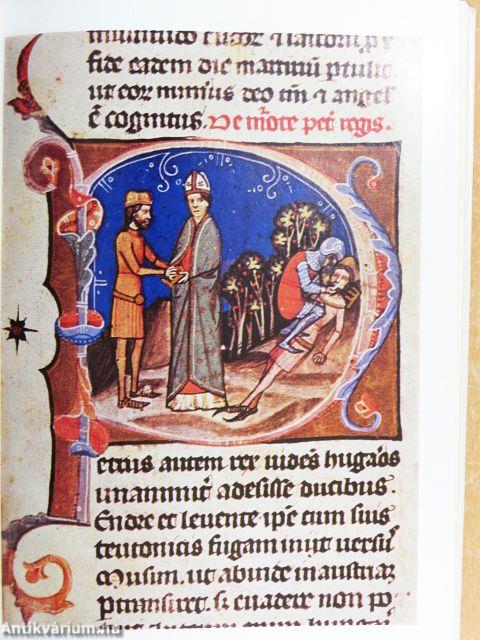 fide eadem die martiriũ ptulit
ut eor numerus deo tm̃ ⁊ angel
ẽ cognitus. De mõte pet̃ regis.
Petrus autem rex uidẽs hugaᵒs
unanimit̃ adesisse ducibus.
Endre et leuente ipẽ cum suis
teutonicis fugam iniit uersũ
Musun. ut abinde in austriaz
ptransiret. si euadere non po
Antikvárium.hu